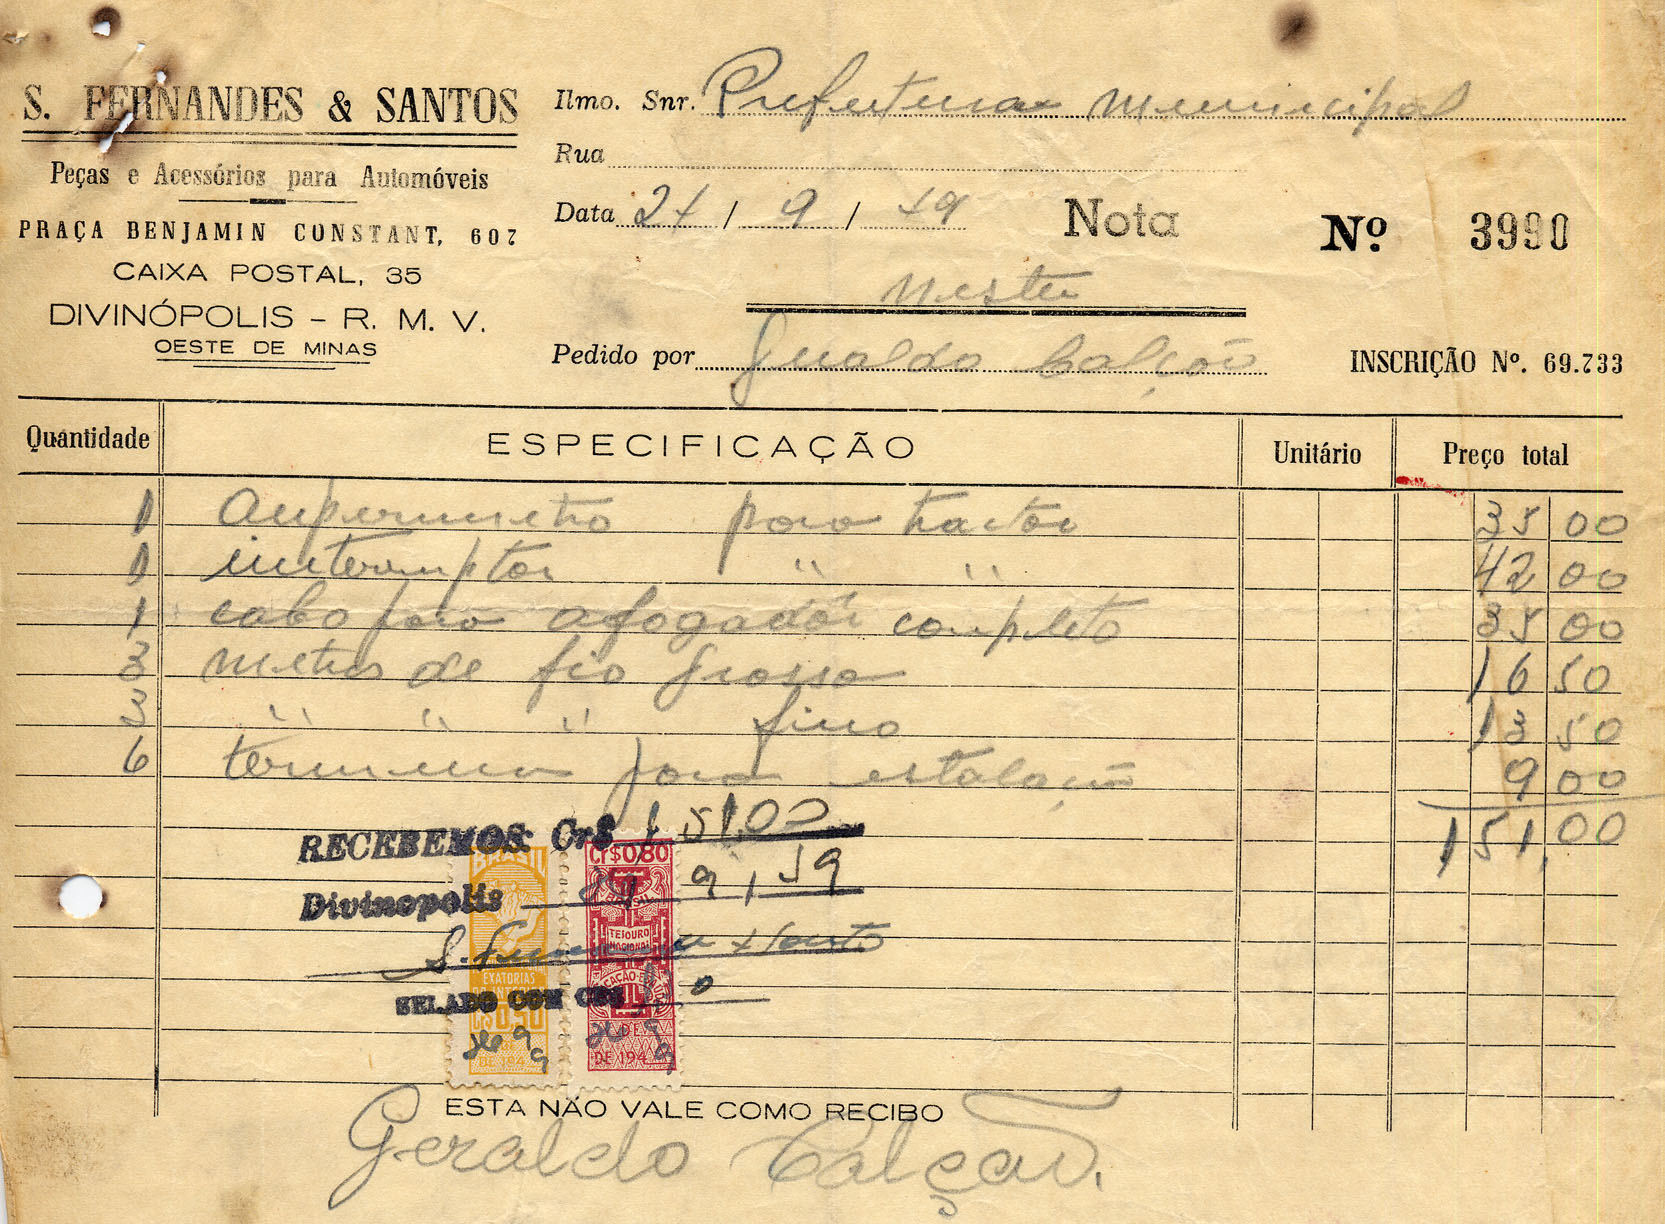 S. FERNANDES & SANTOS
Peças e Acessórios para Automóveis
PRAÇA BENJAMIN CONSTANT, 607
CAIXA POSTAL, 35
DIVINÓPOLIS - R. M. V.
OESTE DE MINAS
Ilmo. Snr. Prefeitura Municipal
Rua
Data 27 / 9 / 49
Nota Nº 3990
Nesta
Pedido por Geraldo Calção
INSCRIÇÃO Nº. 69.733
Quantidade ESPECIFICAÇÃO Unitário Preço total
1 Amperimetro para tractor 35 00
1 interruptor " " 42 00
1 cabo para afogador completo 35 00
3 metros de fio grosso 16 50
3 " " " fino 13 50
6 para estalação 9 00
151,00
RECEBEMOS: Cr$ 151,00
Divinopolis 9, 49
S. Fernandes & Santos
SELADO COM CR$
BRASIL
EXATORIAS
Cr$0,80
BRASIL
TESOURO
NACIONAL
DE 194
DE 194
ESTA NÃO VALE COMO RECIBO
Geraldo Calção.